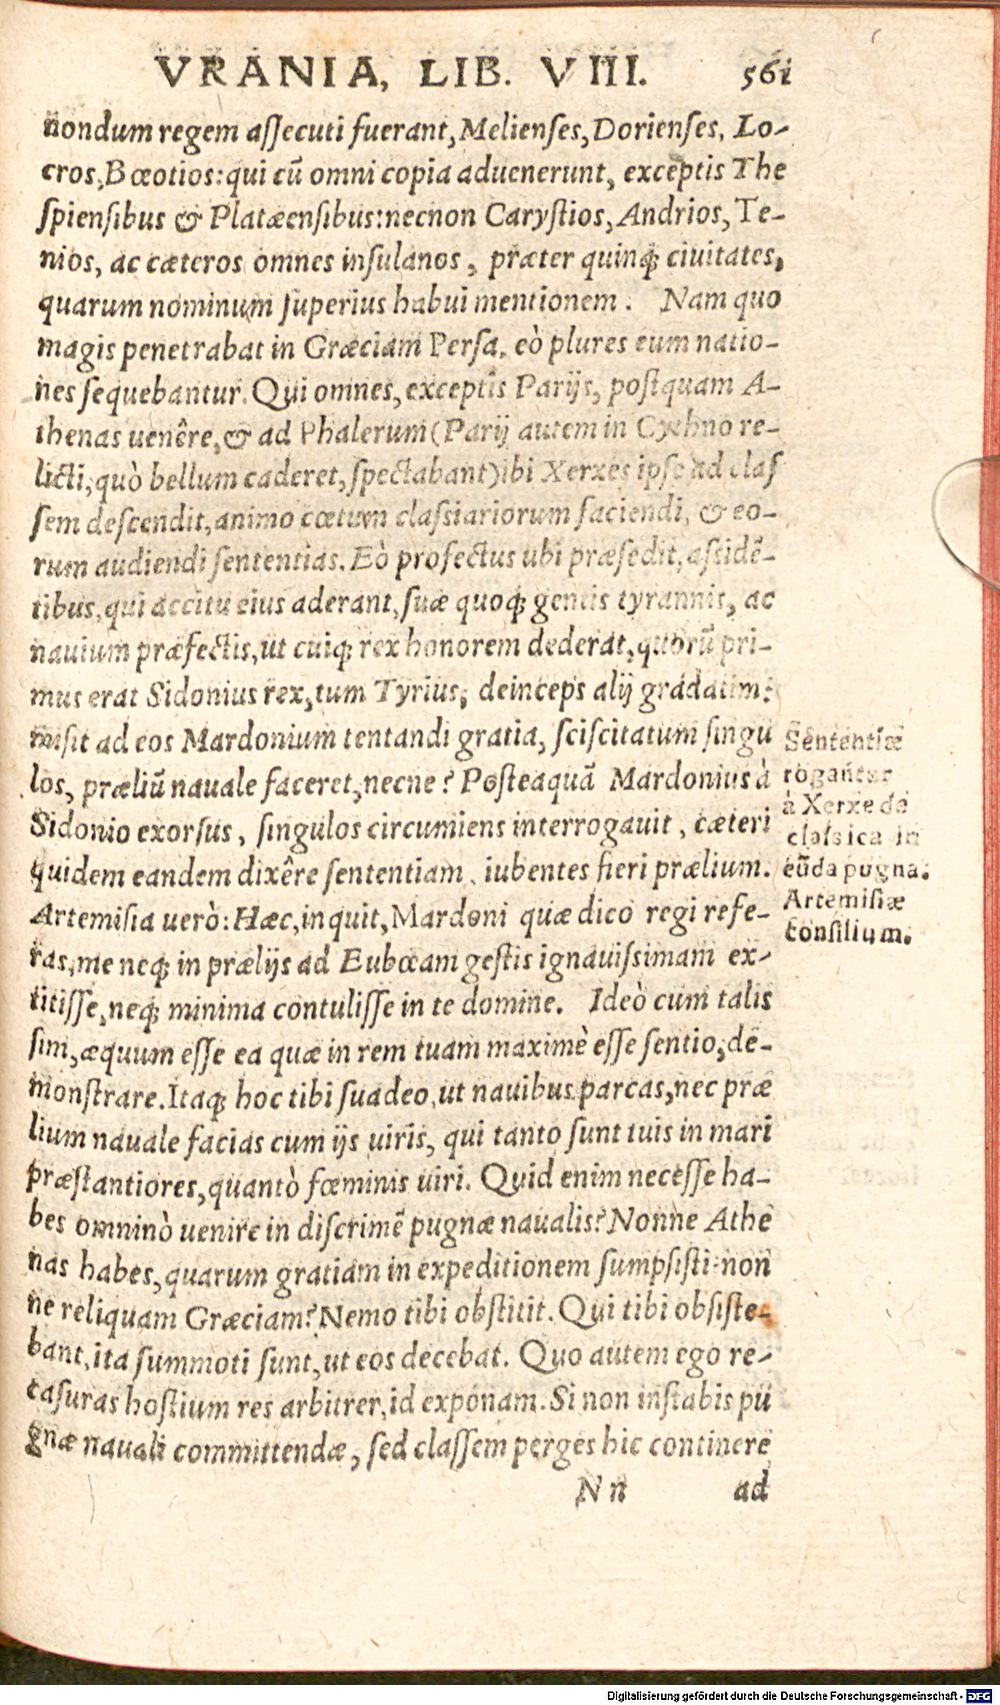 VRANIA, LIB. VIII. 561
nondum regem aſſecuti fuerant, Melienſes, Dorienſes, Lo-
cros, Bœotios: qui cū omni copia aduenerunt, exceptis The
ſpienſibus & Platæenſibus: necnon Caryſtios, Andrios, Te-
nios, ac cæteros omnes inſulanos, præter quinq; ciuitates,
quarum nominum ſuperius habui mentionem. Nam quo
magis penetrabat in Græciam Perſa, eò plures eum natio-
nes ſequebantur. Qui omnes, exceptis Parijs, poſtquam A-
thenas uenêre, & ad Phalerum (Parij autem in Cythno re-
licti, quò bellum caderet, ſpectabant) ibi Xerxes ipſe ad claſ
ſem deſcendit, animo cœtum claſsiariorum faciendi, & eo-
rum audiendi ſententias. Eò profectus ubi præſedit, aſsidē-
tibus, qui accitu eius aderant, ſuæ quoq; gentis tyrannis, ac
nauium præfectis, ut cuiq; rex honorem dederat, quorū pri-
mus erat Sidonius rex, tum Tyrius, deinceps alij gradatim:
miſit ad eos Mardonium tentandi gratia, ſciſcitatum ſingu
los, præliū nauale faceret, necne? Poſteaquā Mardonius à
Sidonio exorſus, ſingulos circumiens interrogauit, cæteri
quidem eandem dixêre ſententiam, iubentes fieri prælium.
Artemiſia uerò: Hæc, inquit, Mardoni quæ dico regi refe-
ras, me neq; in prælijs ad Eubœam geſtis ignauiſsimam ex-
titiſſe, neq; minima contuliſſe in te domine. Ideò cum talis
ſim, æquum eſſe ea quæ in rem tuam maximè eſſe ſentio, de-
monſtrare. Itaq; hoc tibi ſuadeo, ut nauibus parcas, nec præ
lium nauale facias cum ijs uiris, qui tanto ſunt tuis in mari
præſtantiores, quantò fœminis uiri. Quid enim neceſſe ha-
bes omninò uenire in diſcrimē pugnæ naualis? Nonne Athe
nas habes, quarum gratiam in expeditionem ſumpſiſti? non
ne reliquam Græciam? Nemo tibi obſtitit. Qui tibi obſiſte-
bant, ita ſummoti ſunt, ut eos decebat. Quo autem ego re-
caſuras hoſtium res arbitrer, id exponam. Si non inſtabis pu
gnæ nauali committendæ, ſed claſſem perges hic continere
N n ad
Sententiæ
rogantur
à Xerxe de
claſsica in
eūda pugna.
Artemiſiæ
conſilium.
Digitalisierung gefördert durch die Deutsche Forschungsgemeinschaft - DFG